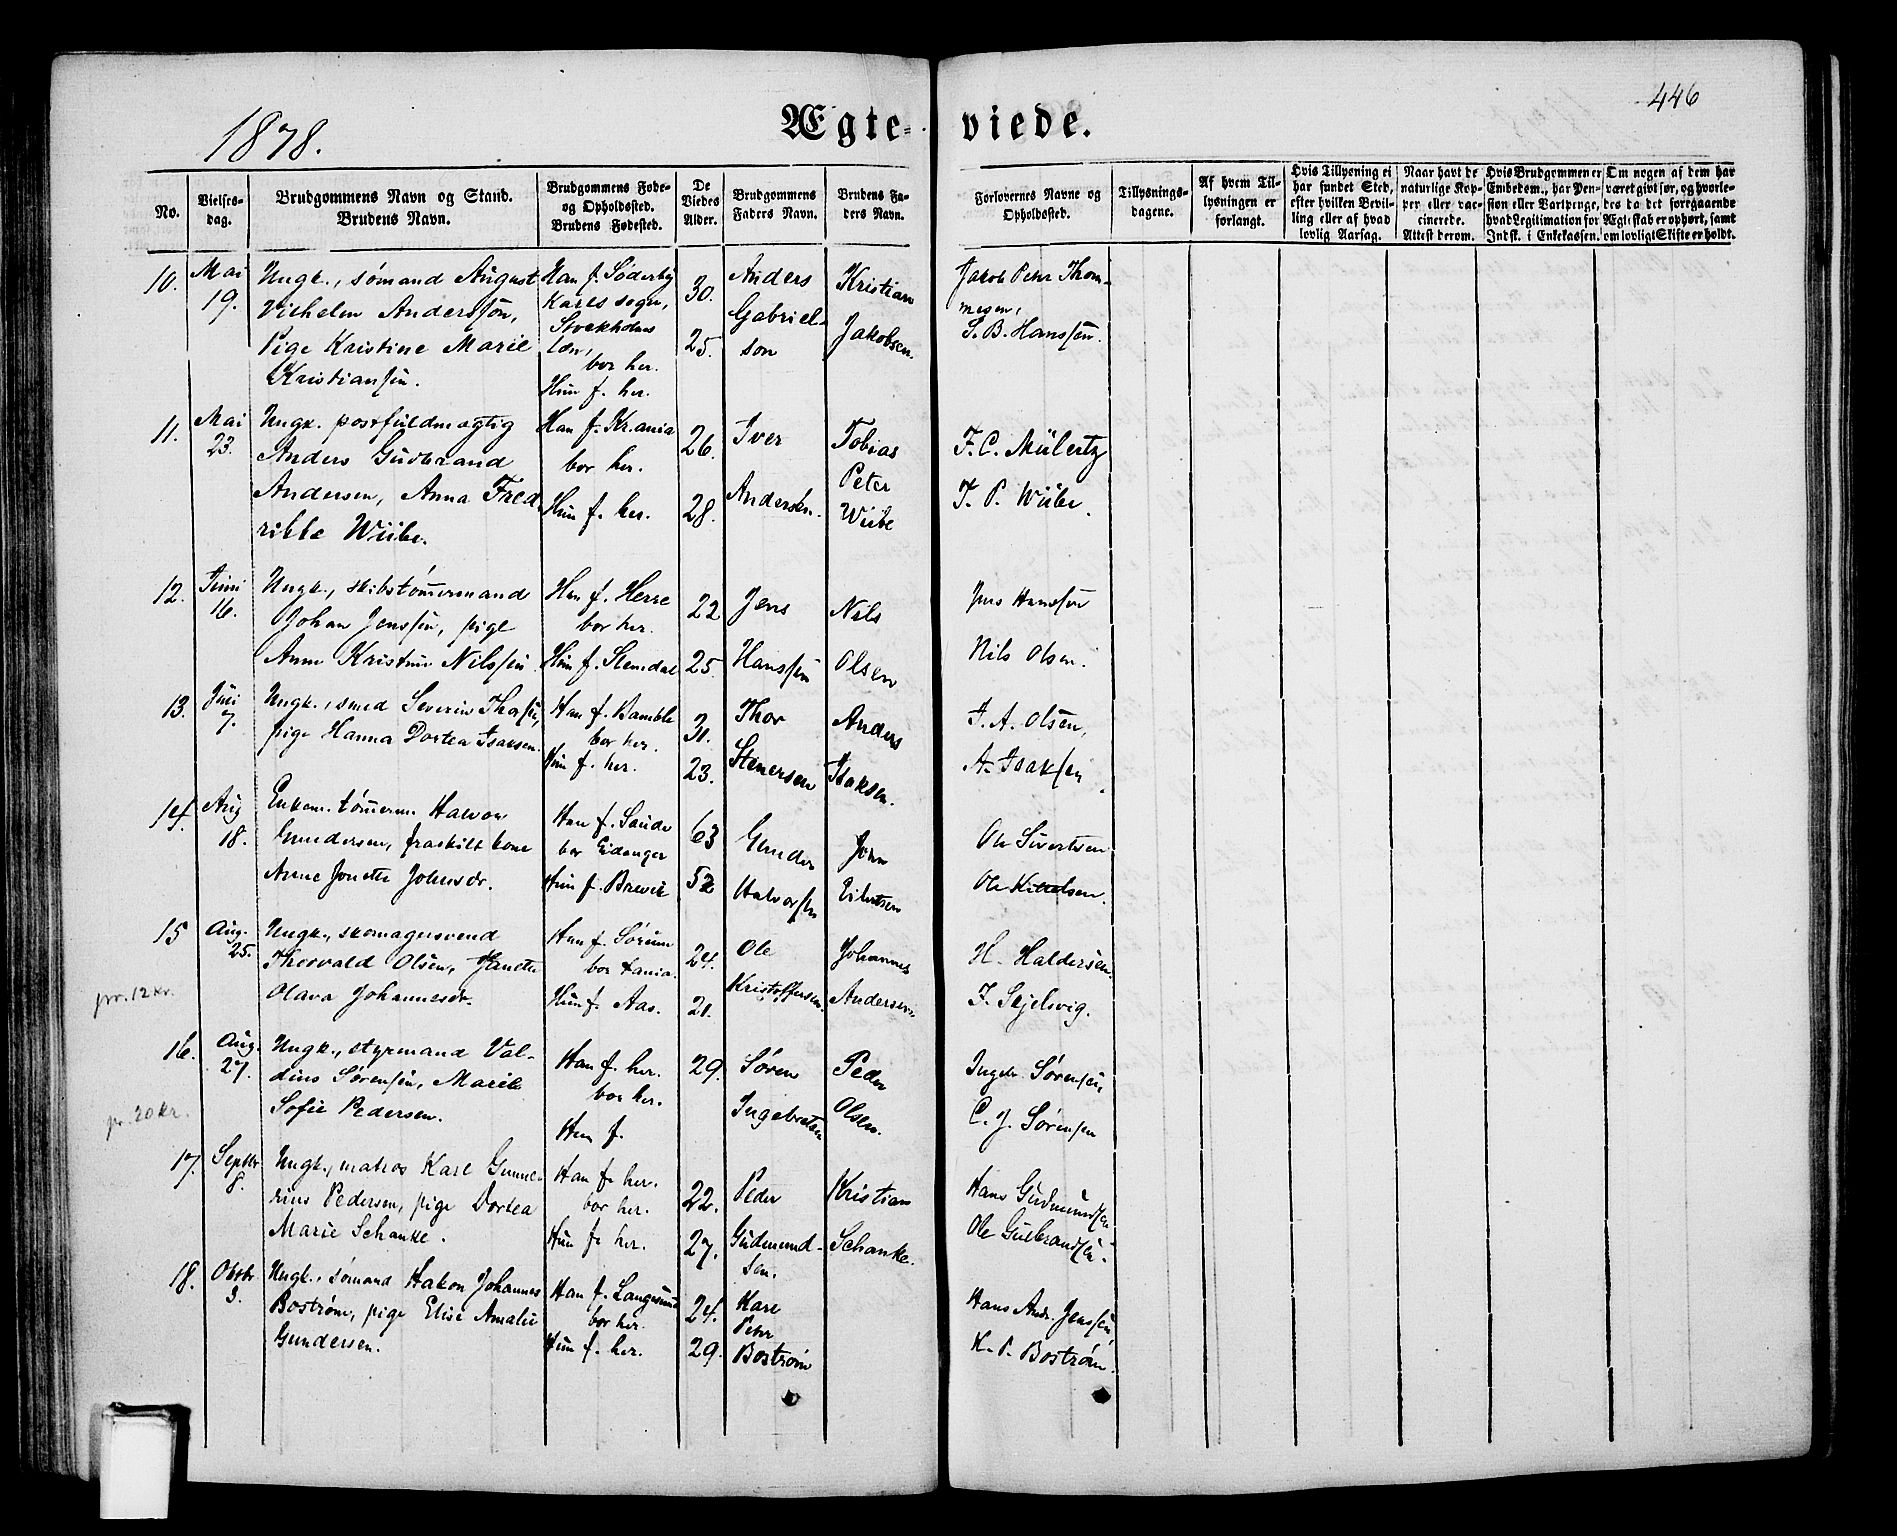 446
1878.
Ægte-viede.
No.
Vielses-
dag.
Brudgommens Navn og Stand.
Brudens Navn.
Brudgommens Føde-
og Opholdssted.
Brudens Fødested.
De
Viedes
Alder.
Brudgommens
Faders Navn.
Brudens Fa-
ders Navn.
Forlovernes Navne og
Opholdssted.
Tillysnings-
dagene.
Af hvem Til-
lysningen er
forlangt.
Hvis Tillysning ei
har fundet Sted,
efter hvilken Bevil-
ling eller af hvad
lovlig Aarsag.
Naar havt de
naturlige Kop-
per eller vac-
cinerede.
Attest derom.
Hvis Brudgommen er
Embedsm., har Pen-
sion eller Vartpenge,
hvad Legitimation for
Indsk. i Enkekassen.
Om nogen af dem har
været gift før, og hvorle-
des da det foregaaende
Ægteskab er ophørt, samt
om lovligt Skifte er holdt.
10.
Mai
19.
Ungk., sømand August
Vilhelm Anderssøn,
Pige Kristine Marie
Kristianssen.
Han f. Söderby
Karls sogn,
Stockholms
län,
bor her.
Hun f. her.
30.
25.
Anders
Gabriel-
son
Kristian
Jakobsen.
Jakob Peter Thom-
mesen,
S. B. Hanssen.
11.
Mai
23.
Ungk. postfuldmægtig
Anders Gudbrand
Andersen, Anna Fred-
rikke Wiibe.
Han f. Kr.ania
bor her.
Hun f. her.
26.
28.
Iver
Andersen.
Tobias
Peter
Wiibe
F. C. Mülertz
T. P. Wiibe.
12.
Juni
16.
Ungk., skibstömermand
Johan Jenssen, pige
Anne Kristine Nilssen
Han f. Herre
bor her.
Hun f. Stendal
22
25.
Jens
Hanssen
Nils
Olsen
Jens Hanssen
Nils Olsen.
13.
Juli
7.
Ungk., smed Severin Thorsen,
pige Hanna Dortea Isaksen.
Han f. Bamble
bor her.
Hun f. her.
31.
23.
Thor
Stenersen
Anders
Isaksen.
I. A. Olsen,
A. Isaksen
14.
Aug
18.
Enkem. tömerm. Halvor
Gundersen, fraskilt kone
Anne Jonette Johnsdr.
Han f. Saude
bor Eidanger
Hun f. Brevik
63
52
Gunder
Halvorsen
John
Eilertsen
Ole Sivertsen
Ole Kittelsen.
15
Aug.
25.
Ungk., skomagersvend
Thorvald Olsen, Janette
Olava Johannesdr.
Han f. Sörum
bor Kania.
Hun f. Aas.
24.
21.
Ole
Kristoffersen.
Johannes
Andersen
H. Haldersen.
I. Skjelsvig.
pr. 12 kr.
16.
Aug.
27.
Ungk., styrmand Val-
dius Sørensen, Marie
Sofie Pedersen.
Han f. her.
bor her.
Hun f.
29.
Søren
Ingebretsen
Peder
Olsen.
Ingebr. Sørensen
C. J. Sørensen
pr. 20 kr.
17.
Septbr
8.
Ungk., matros Karl Gunne-
rius Pedersen, pige Dortea
Marie Schanke.
Han f. her.
bor her.
Hun f. her.
22.
27.
Peder
Gudmund-
sen.
Kristian
Schanke.
Hans Gudmundsen
Ole Gulbrandsen.
18.
Oktbr.
3.
Ungk., sømand Hakon Johannes
Bostrøm, pige Elise Amalie
Gundersen.
Han f. Langesund
bor her.
Hun f. her.
24.
29.
Karl
Peter
Bostrøm
Hans Andr. Jenssen,
K. P. Bostrøm.